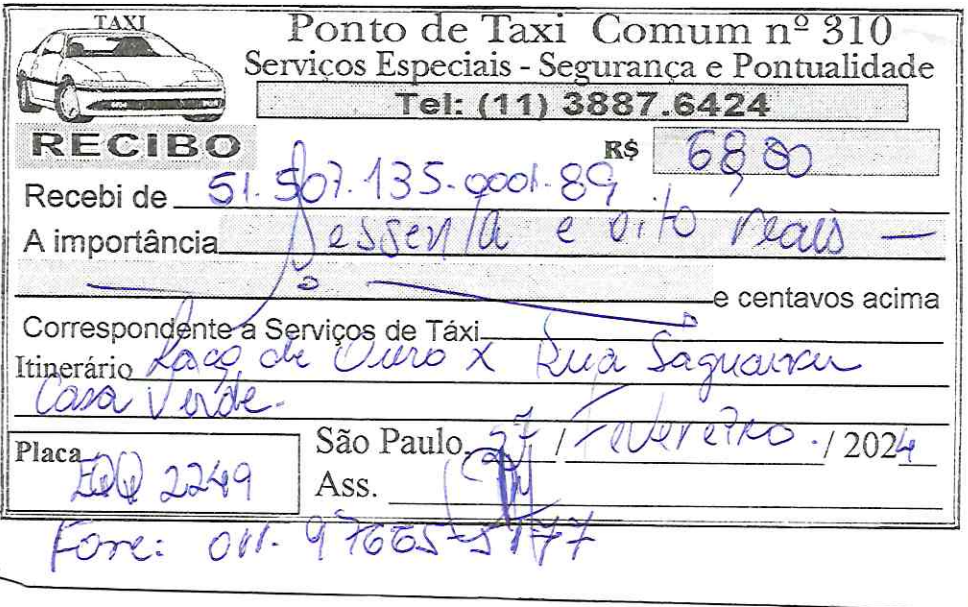 TAXI
Ponto de Taxi Comum nº 310
Serviços Especiais - Segurança e Pontualidade
Tel: (11) 3887.6424
RECIBO
R$ 68,00
Recebi de 51.507.135.0001.89
A importância Sessenta e oito reais —
e centavos acima
Correspondente a Serviços de Táxi
Itinerário Laço de Ouro x Rua Saguairu
Casa Verde.
Placa EQQ 2249
São Paulo, 27 / Fevereiro. / 2024
Ass.
Fone: 011. 97665-5177